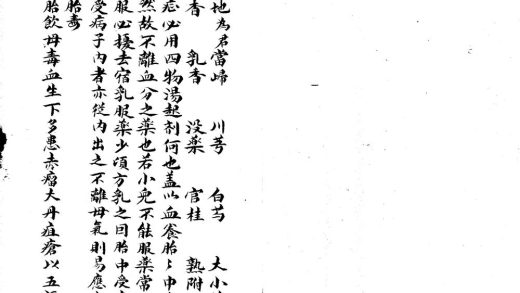 地為君當歸 川芎 白芍 大小
香 乳香 没藥 官桂 熟附
症必用四物湯起剂何也盖以血養胎〻中
然故不離血分之藥也若小兒不能服藥常
服必擾去宿乳服藥少頃方乳之回胎中受
受病子內者亦從內出之不離母氣則易應
胎毒
胎飲母毒血生下多患赤瘤大丹疽瘡以五